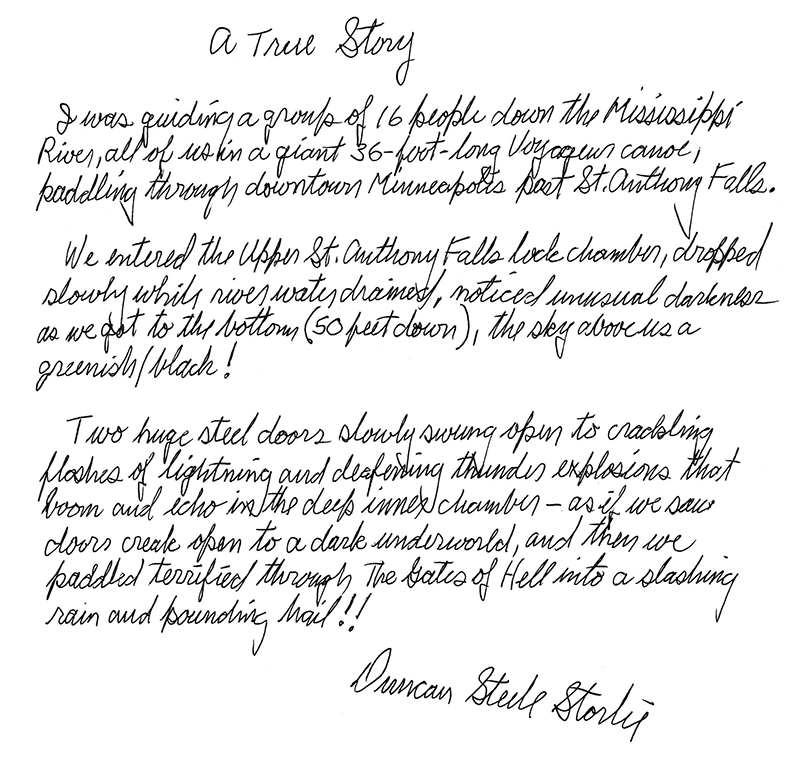 A True Story
I was guiding a group of 16 people down the Mississippi
River, all of us in a giant 36-foot-long Voyageur canoe,
paddling through downtown Minneapolis past St. Anthony Falls.
We entered the Upper St. Anthony Falls lock chamber, dropped
slowly while river water drained, noticed unusual darkness
as we got to the bottom (50 feet down), the sky above us a
greenish/black!
Two huge steel doors slowly swung open to crackling
flashes of lightning and deafening thunder explosions that
boom and echo in the deep inner chamber – as if we saw
doors creak open to a dark underworld, and then we
paddled terrified through The Gates of Hell into a slashing
rain and pounding hail!!
Duncan Steele Storlie